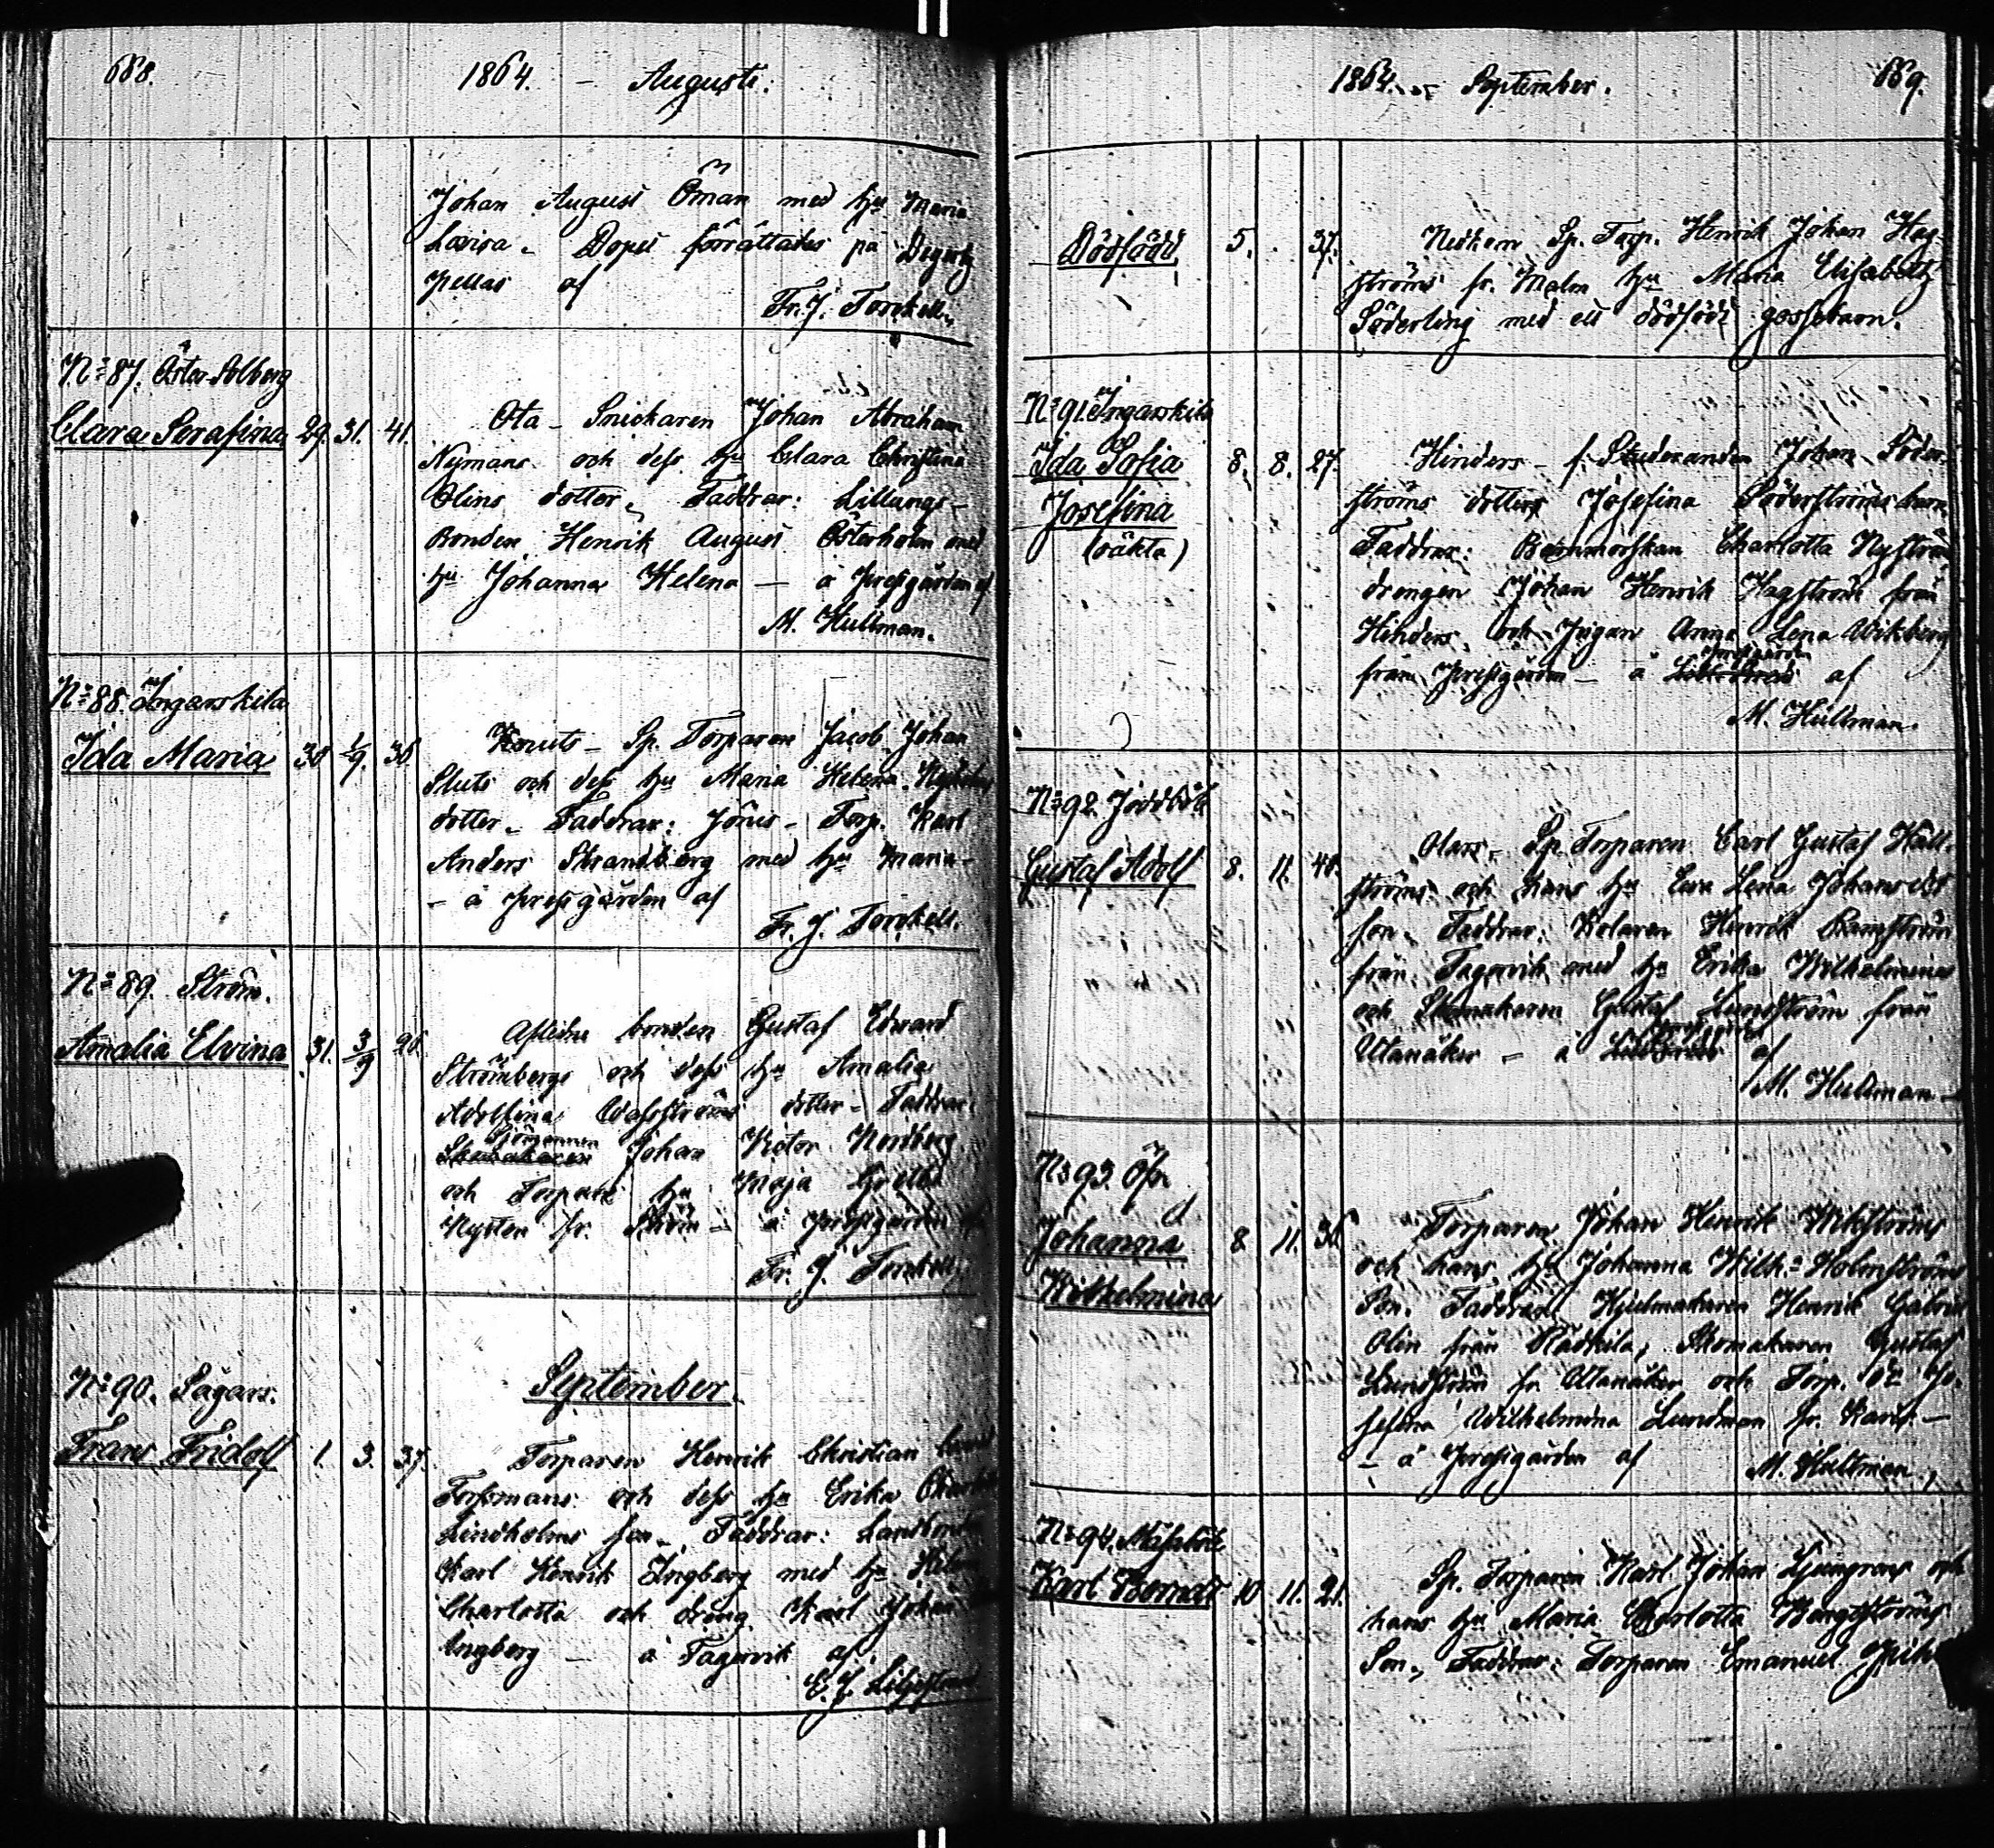 688.
1864. – Augusti.
Johan August Öman med hu Maria
Lovisa – Dopet förrättades på Degerby
af
Fr. J. Torckell.
No 87. Öster Solberg
Clara Serafina 29. 31. 41.
Ota – Snickaren Johan Abraham
Nymans och dess hu Clara Christina
Olins dotter – Faddrar: Lillungs –
Bonden Henrik August Österholm med
hu Johanna Helena — å prestgården af
M. Hultman.
No 88. Ingarskila
Ida Maria 30 1/9. 30.
Knuts – Sp. Torparen Jacob Johan
Sluts och dess hu Maria Helena
dotter – Faddrar: Jönis – Torp. Karl
Anders Strandberg med hu Maria –
– å prestgården af
Fr. J. Torckell.
No 89. Ström.
Amalia Elvina 31. 3/9 26.
Aflidne bonden Gustaf Edvard
Strömbergs och dess hu Amalia
Adolfina Wafströms dotter – Faddrar:
Sjömannen
Skomakaren Johan Victor Nordberg
och Torpare hu Maja Greta
Nysten fr. Ström – å prestgården af
Fr. J. Torckell.
No 90. Sågars.
September.
Frans Fridolf 1. 3. 37.
Torparen Henrik Christian
Forsmans och dess hu Erika
Lindholms son – Faddrar:
Karl Henrik Engberg med hu
Charlotta och dräng Karl Johan
Engberg — å Fagervik af
E. J. Liljestrand
1864. – September.
689.
Dödfödd 5. 37.
Nedkom Sp. Torp. Henrik Johan Hag-
ströms fr. Malm hu Maria Elisabeth
Söderling med ett dödfödt gossebarn.
No 91. Ingarskila
Ida Sofia 8. 8. 27.
Josefina
(oäkta)
Hinders – f. Studeranden Johan Söder-
ströms dotters Josefina Söderströms barn.
Faddrar: Barnmorskan Charlotta Nyström
drengen Johan Henrik Hagström från
Hinders och Pigan Anna Lena Wikberg
prestgården
från Prestgården – å af
M. Hultman.
No 92. Joddböle
Gustaf Adolf 8. 11. 40.
Olars – Sp. Torparen Carl Gustaf Häll-
ströms och hans hu Eva Lena Johansdts
son – Faddrar: Kolaren Henrik Ramström
från Fagervik med hu Erika Wilhelmina
och Skomakaren Gustaf Lundström från
Utanåker – å af
M. Hultman –
No 93.
Johanna 8 11. 36.
Wilhelmina
Torparen Johan Henrik Wikströms
och hans hu Johanna Wilh:a Holmströms
Son. Faddrar: Hjulmakaren Henrik Gabriel
Olin från Rådkila, Skomakaren Gustaf
Lundström fr. Utanåker och Torp. dr Jo-
sefina Wilhelmina Lundman fr. Karis –
– å prestgården af
M. Hultman.
No 94.
Karl Berndt 10 11. 21.
Sp. Torparen Karl Johan Ljunggrens och
hans hu Maria Charlotta Bengtströms
Son., Faddrar: Torparen Emanuel